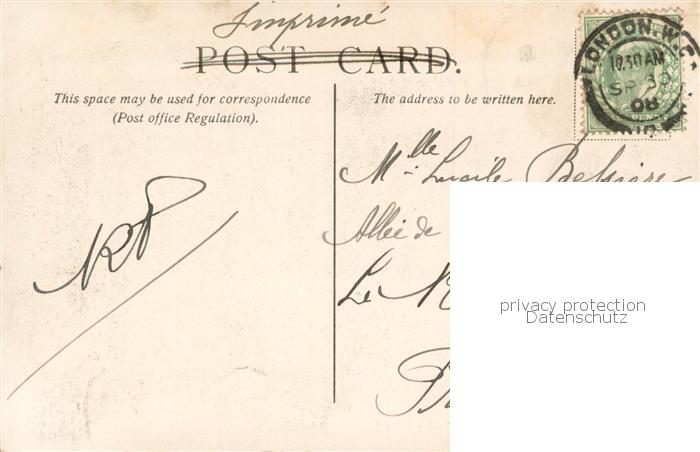 Imprimé
POST CARD.
This space may be used for correspondence
(Post office Regulation).
The address to be written here.
LONDON W.C.
10.30 AM
SP 30
08
PENNY
Mlle Lucile
Allée de
Le
privacy protection
Datenschutz